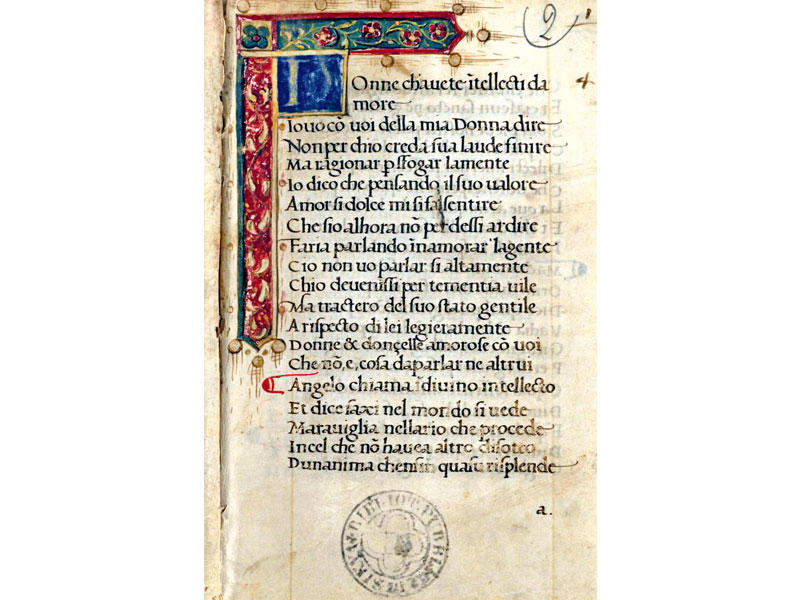 2
4
DOnne chauete ĩtellecti da
more
Io uo cõ uoi della mia Donna dire
Non per chio creda sua laude finire
Ma ragionar p sfogar lamente
Io dico che pensando il suo ualore
Amor si dolce mi si fa sentire
Che sio alhora nõ perdessi ardire
Faria parlando ĩnamorar lagente
Cio non uo parlar si altamente
Chio deuenissi per tementia uile
Ma tracterò del suo stato gentile
A rispecto di lei legieramente
Donne & donçelle amorose cõ uoi
Che nõ, e, cosa daparlar ne altrui
Angelo chiama ĩ diuino intellecto
Et dice saxi nel mondo si uede
Marauiglia nellacto che procede
Incel che nõ hauea altro difecto
Dunanima chensin quasu risplende
a.
BIBLIOT. PUBBLICA DI SIENA